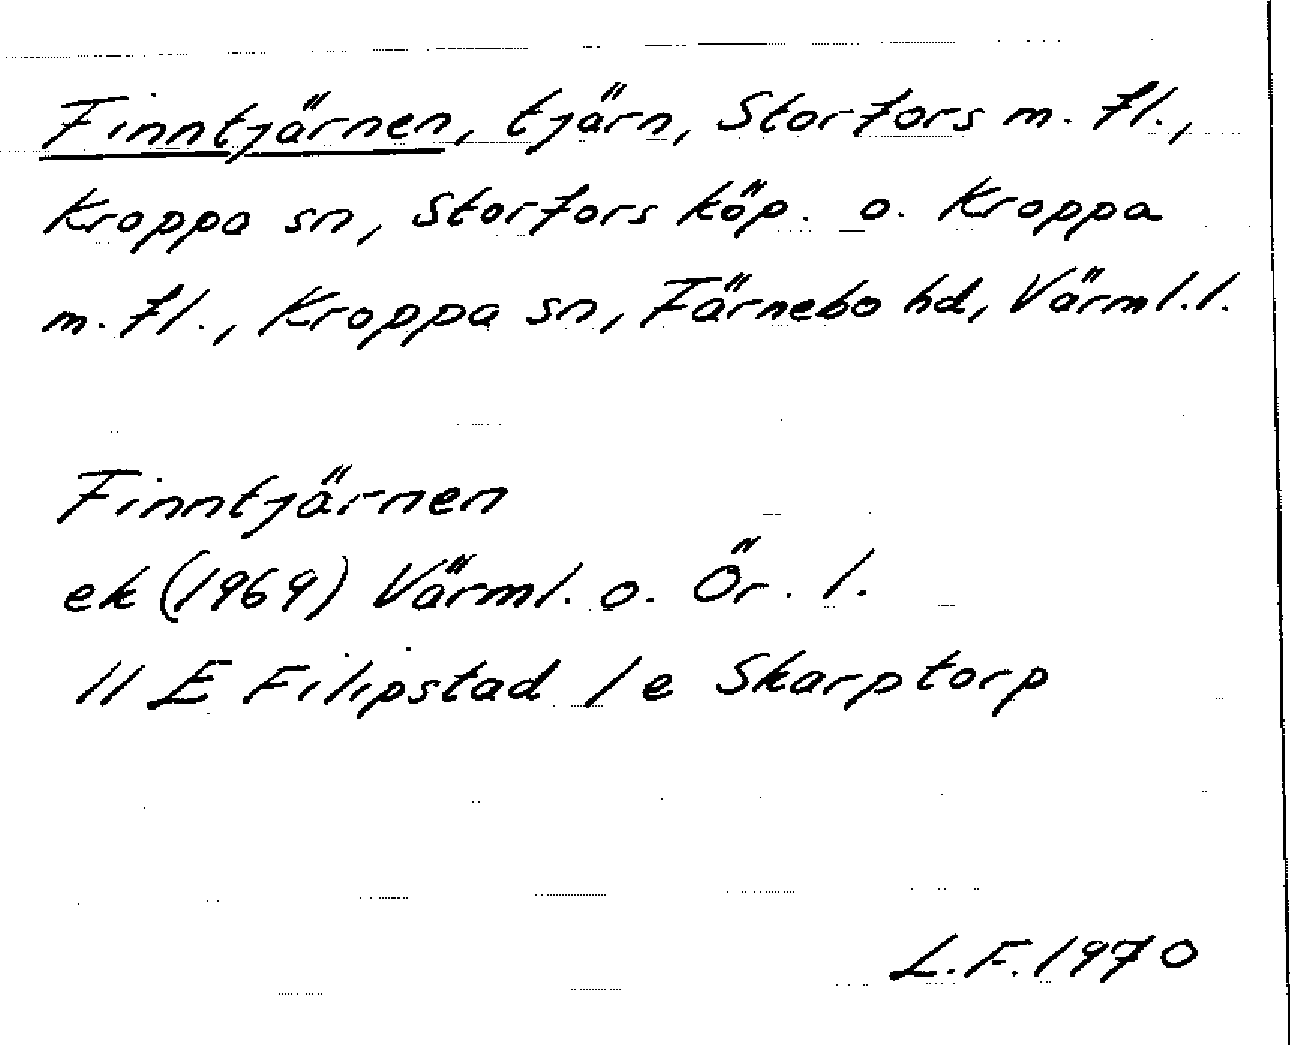 Finntjärnen, tjärn, Storfors m. fl.,
Kroppa sn, Storfors köp. o. Kroppa
m. fl., Kroppa sn, Färnebo hd, Värml. l.
Finntjärnen
ek (1969) Värml. o. Ör. l.
11 E Filipstad 1 e Skarptorp
L.F. 1970